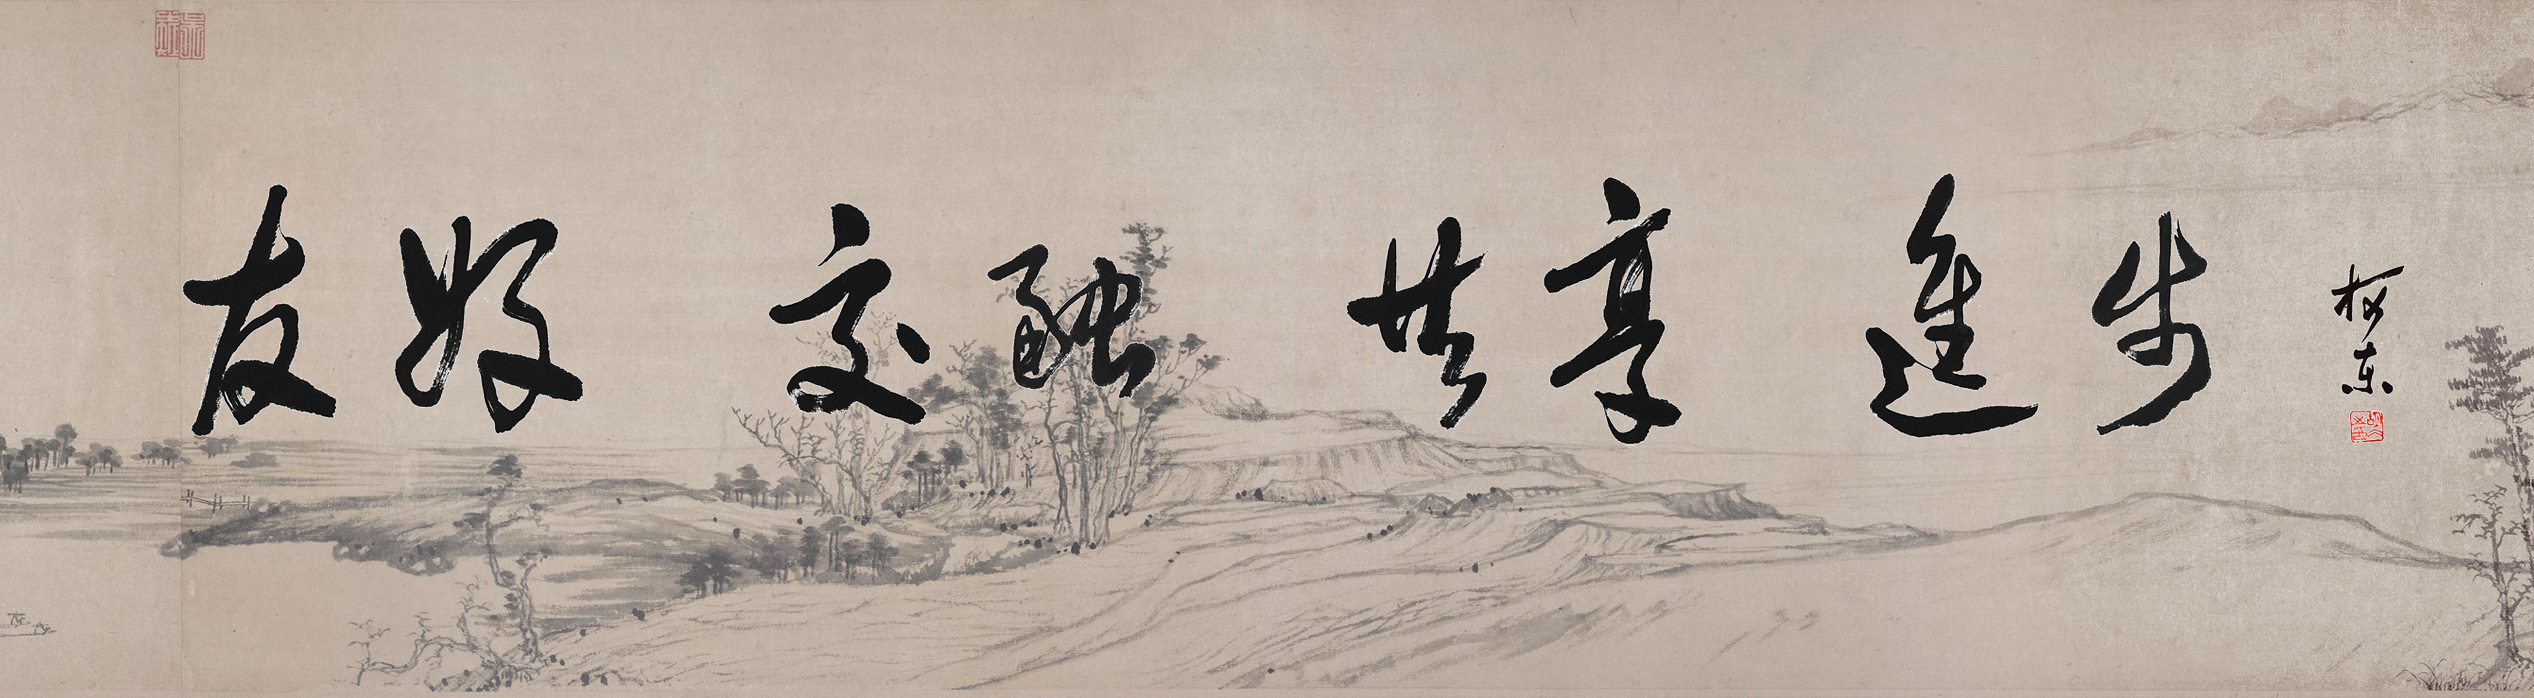 友好 交融 共享 進步